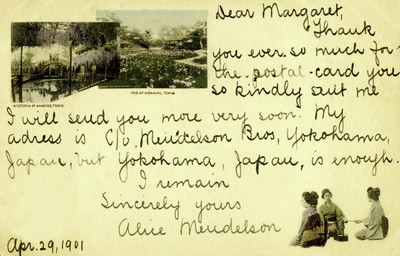 Dear Margaret,
Thank
you ever so much for
the postal-card you
so kindly sent me
I will send you more very soon. My
adress is C/o Mendelson Bros, Yokohama,
Japan, but Yokohama, Japan, is enough.
I remain
Sincerely yours
Alice Mendelson
Apr. 29, 1901
WISTERIA AT KAMEIDO, TOKIO.
IRIS AT HORIKIRI, TOKIO